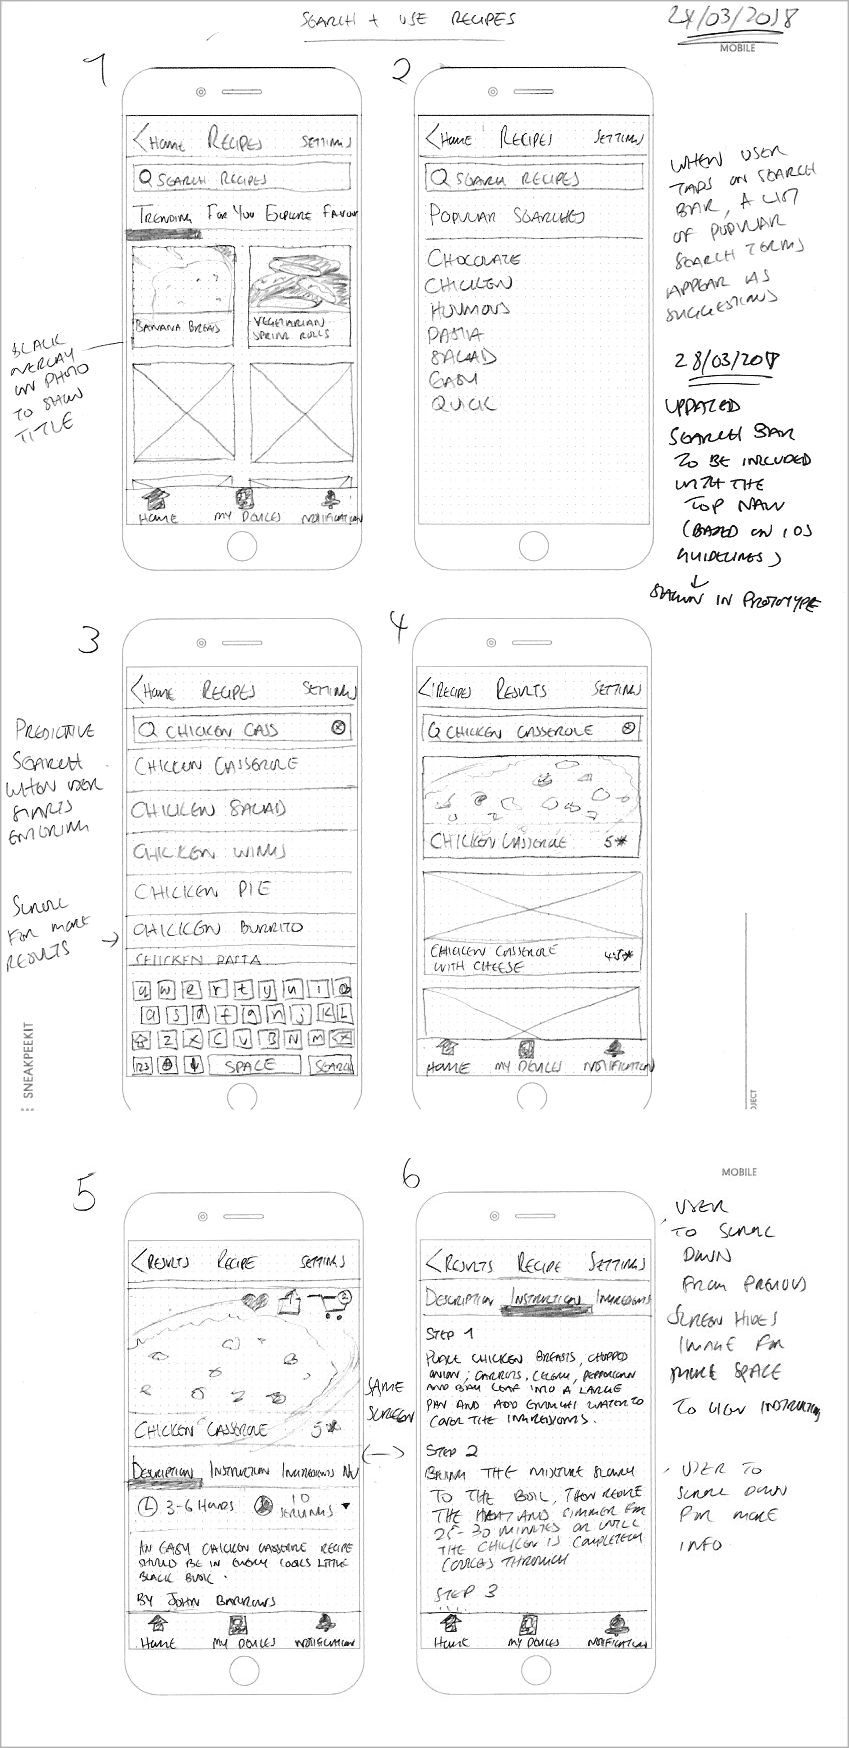 SEARCH + USE RECIPES
28/03/2018
MOBILE
1
< HOME RECIPES SETTINGS
SEARCH RECIPES
TRENDING FOR YOU EXPLORE FAVOUR
BANANA BREAD
VEGETARIAN
SPRING ROLLS
HOME MY DEVICES NOTIFICATION
BLACK
OVERLAY
ON PHOTO
TO SHOW
TITLE
2
< HOME RECIPES SETTINGS
SEARCH RECIPES
POPULAR SEARCHES
CHOCOLATE
CHICKEN
HUMMOUS
PASTA
SALAD
EASY
QUICK
WHEN USER
TAPS ON SEARCH
BAR, A LIST
OF POPULAR
SEARCH TERMS
APPEAR AS
SUGGESTIONS
28/03/2018
UPDATED
SEARCH BAR
TO BE INCLUDED
WITH THE
TOP NAV
(BASED ON IOS
GUIDELINES)
SHOWN IN PROTOTYPE
3
< HOME RECIPES SETTINGS
CHICKEN CASS
CHICKEN CASSEROLE
CHICKEN SALAD
CHICKEN WINGS
CHICKEN PIE
CHICKEN BURRITO
CHICKEN PASTA
q w e r t y u i o
a s d f g h j k L
Z X C V B N M
123 SPACE SEARCH
PREDICTIVE
SEARCH
WHEN USER
STARTS
ENTERING
SCROLL
FOR MORE
RESULTS
SNEAKPEEKIT
4
< RECIPES RESULTS SETTINGS
CHICKEN CASSEROLE
CHICKEN CASSEROLE 5*
CHICKEN CASSEROLE
WITH CHEESE 4.5*
HOME MY DEVICES NOTIFICATION
JECT
5
< RESULTS RECIPE SETTINGS
2
CHICKEN CASSEROLE 5*
DESCRIPTION INSTRUCTION INGREDIENTS NU
3-6 HOURS 10
SERVINGS
AN EASY CHICKEN CASSEROLE RECIPE
SHOULD BE IN EVERY COOKS LITTLE
BLACK BOOK.
BY JOHN BARROWS
HOME MY DEVICES NOTIFICATION
SAME
SCREEN
6
MOBILE
< RESULTS RECIPE SETTINGS
DESCRIPTION INSTRUCTION INGREDIENTS
STEP 1
PLACE CHICKEN BREASTS, CHOPPED
ONION, CARROTS, CELERY, PEPPERCORN
AND BAY LEAF INTO A LARGE
PAN AND ADD ENOUGH WATER TO
COVER THE INGREDIENTS.
STEP 2
BRING THE MIXTURE SLOWLY
TO THE BOIL, THEN REDUCE
THE HEAT AND SIMMER FOR
25-30 MINUTES OR UNTIL
THE CHICKEN IS COMPLETELY
COOKED THROUGH
STEP 3
HOME MY DEVICES NOTIFICATION
USER
TO SCROLL
DOWN
FROM PREVIOUS
SCREEN HIDES
IMAGE FOR
MORE SPACE
TO VIEW INSTRUCTION
USER TO
SCROLL DOWN
FOR MORE
INFO